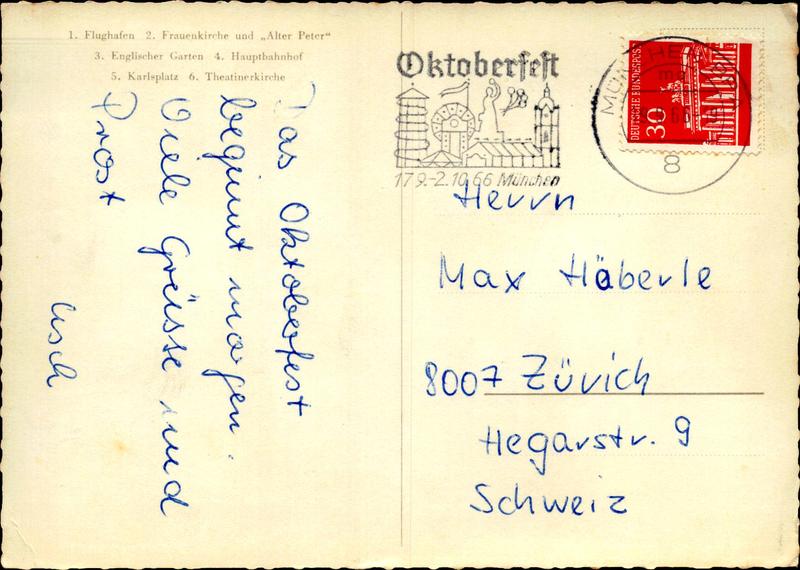 1. Flughafen 2. Frauenkirche und „Alter Peter"
3. Englischer Garten 4. Hauptbahnhof
5. Karlsplatz 6. Theatinerkirche
Das Oktoberfest
beginnt morgen.
Viele Grüsse und
Prost
Oktoberfest
17.9.-2.10.66 München
MÜNCHEN
8
DEUTSCHE BUNDESPOST
30
Herrn
Max Häberle
8007 Zürich
Hegarstr. 9
Schweiz